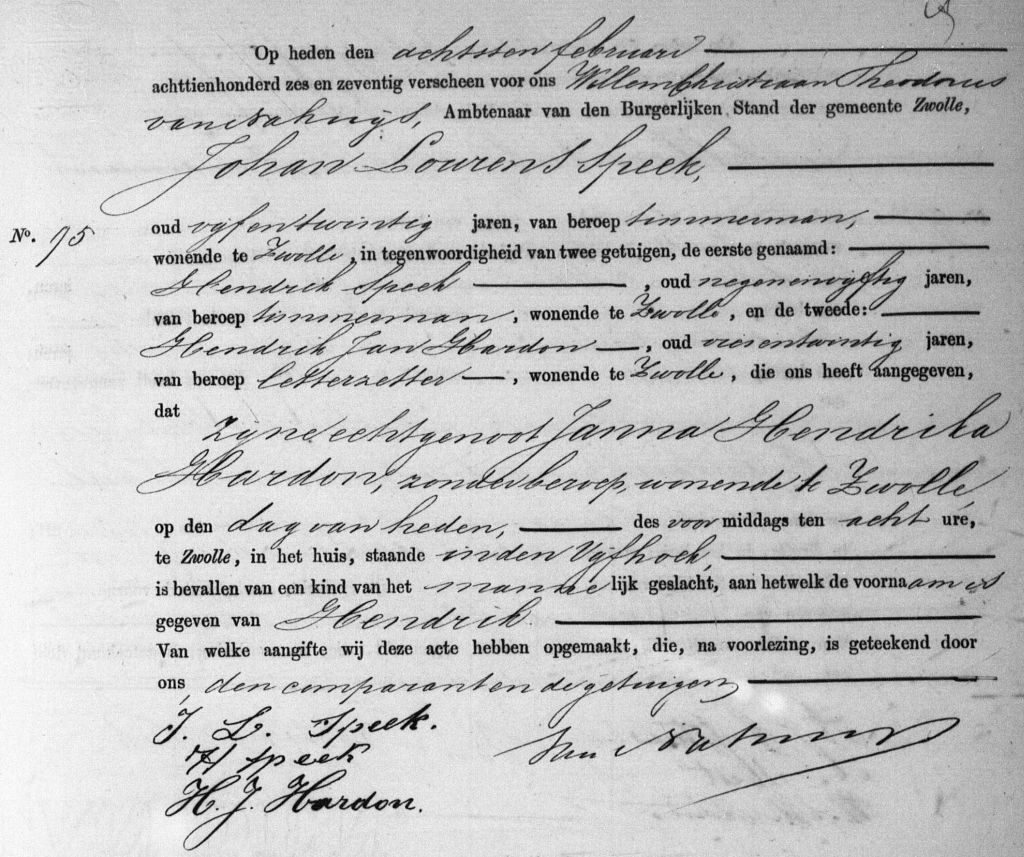 Op heden den achttien februari
achttienhonderd zes en zeventig verscheen voor ons Willem Christiaan Theodorus
van Nahuijs, Ambtenaar van den Burgerlijken Stand der gemeente Zwolle,
Johan Lourens Speek,
No. 75
oud vijfentwintig jaren, van beroep timmerman,
wonende te Zwolle, in tegenwoordigheid van twee getuigen, de eerste genaamd:
Hendrik Speek, oud negenenvijftig jaren,
van beroep timmerman, wonende te Zwolle, en de tweede:
Hendrik Jan Hardon, oud vierentwintig jaren,
van beroep letterzetter, wonende te Zwolle, die ons heeft aangegeven,
dat
zijne echtgenoot Janna Hendrika
Hardon, zonder beroep, wonende te Zwolle
op den dag van heden, des voormiddags ten acht ure,
te Zwolle, in het huis, staande in den Vijfhoek,
is bevallen van een kind van het mannelijk geslacht, aan hetwelk de voornaam is
gegeven van Hendrik.
Van welke aangifte wij deze acte hebben opgemaakt, die, na voorlezing, is geteekend door
ons, den comparant en de getuigen
J. L. Speek.
H Speek
H. J. Hardon.
Van Nahuijs